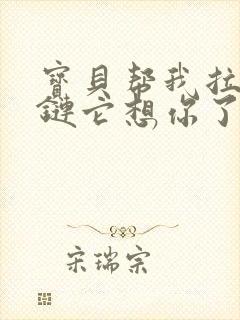 寶貝幫我拉
鏈它想你了
宋瑞宗